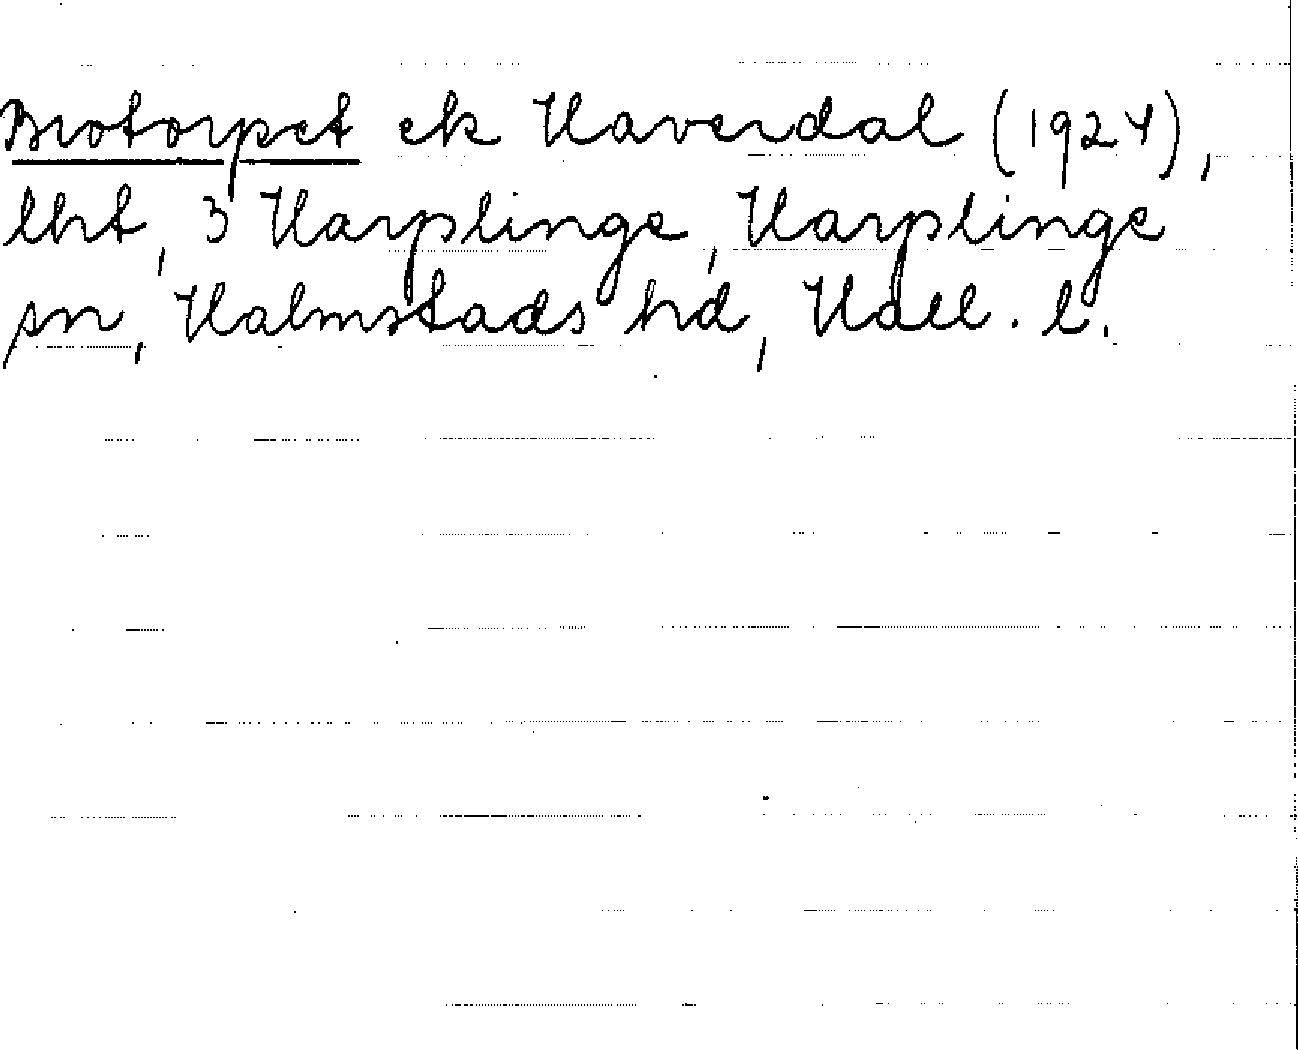 Brotorpet ek Haverdal (1924),
lht, 3 Harplinge, Harplinge
sn, Halmstads hd, Hall. l.